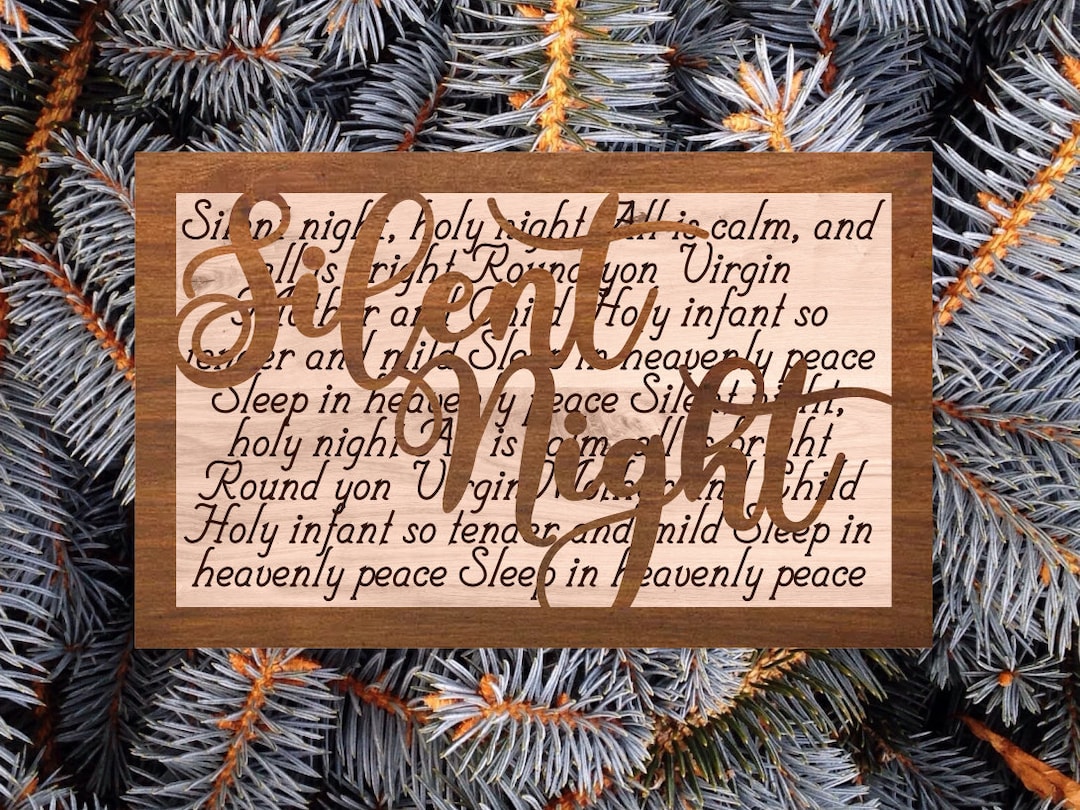 Silent
Night
Silent night, holy night All is calm, and
all is bright Round yon Virgin
Mother and Child Holy infant so
tender and mild Sleep in heavenly peace
Sleep in heavenly peace Silent night,
holy night All is calm all is bright
Round yon Virgin Mother and Child
Holy infant so tender and mild Sleep in
heavenly peace Sleep in heavenly peace